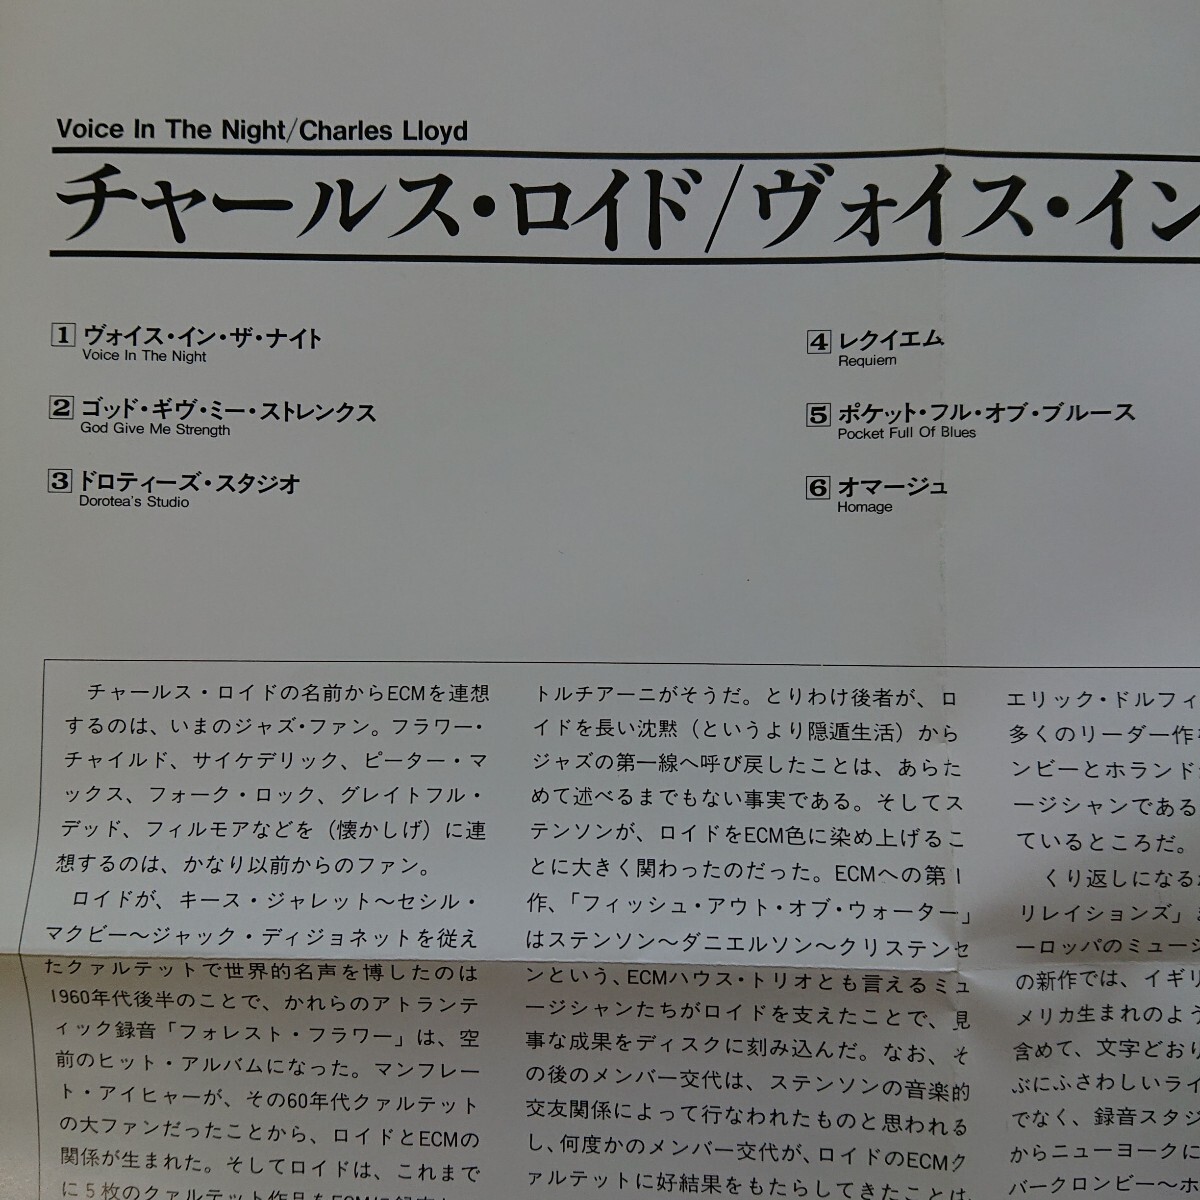 Voice In The Night/Charles Lloyd
チャールス・ロイド/ヴォイス・イン
1 ヴォイス・イン・ザ・ナイト
Voice In The Night
2 ゴッド・ギヴ・ミー・ストレンクス
God Give Me Strength
3 ドロティーズ・スタジオ
Dorotea's Studio
4 レクイエム
Requiem
5 ポケット・フル・オブ・ブルース
Pocket Full Of Blues
6 オマージュ
Homage
チャールス・ロイドの名前からECMを連想
するのは、いまのジャズ・ファン。フラワー・
チャイルド、サイケデリック、ピーター・マ
ックス、フォーク・ロック、グレイトフル・
デッド、フィルモアなどを（懐かしげ）に連
想するのは、かなり以前からのファン。
ロイドが、キース・ジャレット〜セシル・
マクビー〜ジャック・ディジョネットを従え
たクァルテットで世界的名声を博したのは
1960年代後半のことで、かれらのアトランテ
ィック録音「フォレスト・フラワー」は、空
前のヒット・アルバムになった。マンフレー
ト・アイヒャーが、その60年代クァルテット
の大ファンだったことから、ロイドとECMの
関係が生まれた。そしてロイドは、これまで
に5枚のクァルテット作品をECMに
トルチアーニがそうだ。とりわけ後者が、ロ
イドを長い沈黙（というより隠遁生活）から
ジャズの第一線へ呼び戻したことは、あらた
めて述べるまでもない事実である。そしてス
テンソンが、ロイドをECM色に染め上げるこ
とに大きく関わったのだった。ECMへの第1
作、「フィッシュ・アウト・オブ・ウォーター」
はステンソン〜ダニエルソン〜クリステンセ
ンという、ECMハウス・トリオとも言えるミュ
ージシャンたちがロイドを支えたことで、見
事な成果をディスクに刻み込んだ。なお、そ
の後のメンバー交代は、ステンソンの音楽的
交友関係によって行なわれたものと思われる
し、何度かのメンバー交代が、ロイドのECMク
ァルテットに好結果をもたらしてきたことは、
エリック・ドルフィ
多くのリーダー作
ンビーとホランド
ージシャンである
ているところだ。
くり返しになる
リレイションズ」
ーロッパのミュージ
の新作では、イギリ
メリカ生まれのよう
含めて、文字どおり
ぶにふさわしいライ
でなく、録音スタジ
からニューヨークに
バークロンビー〜ホ